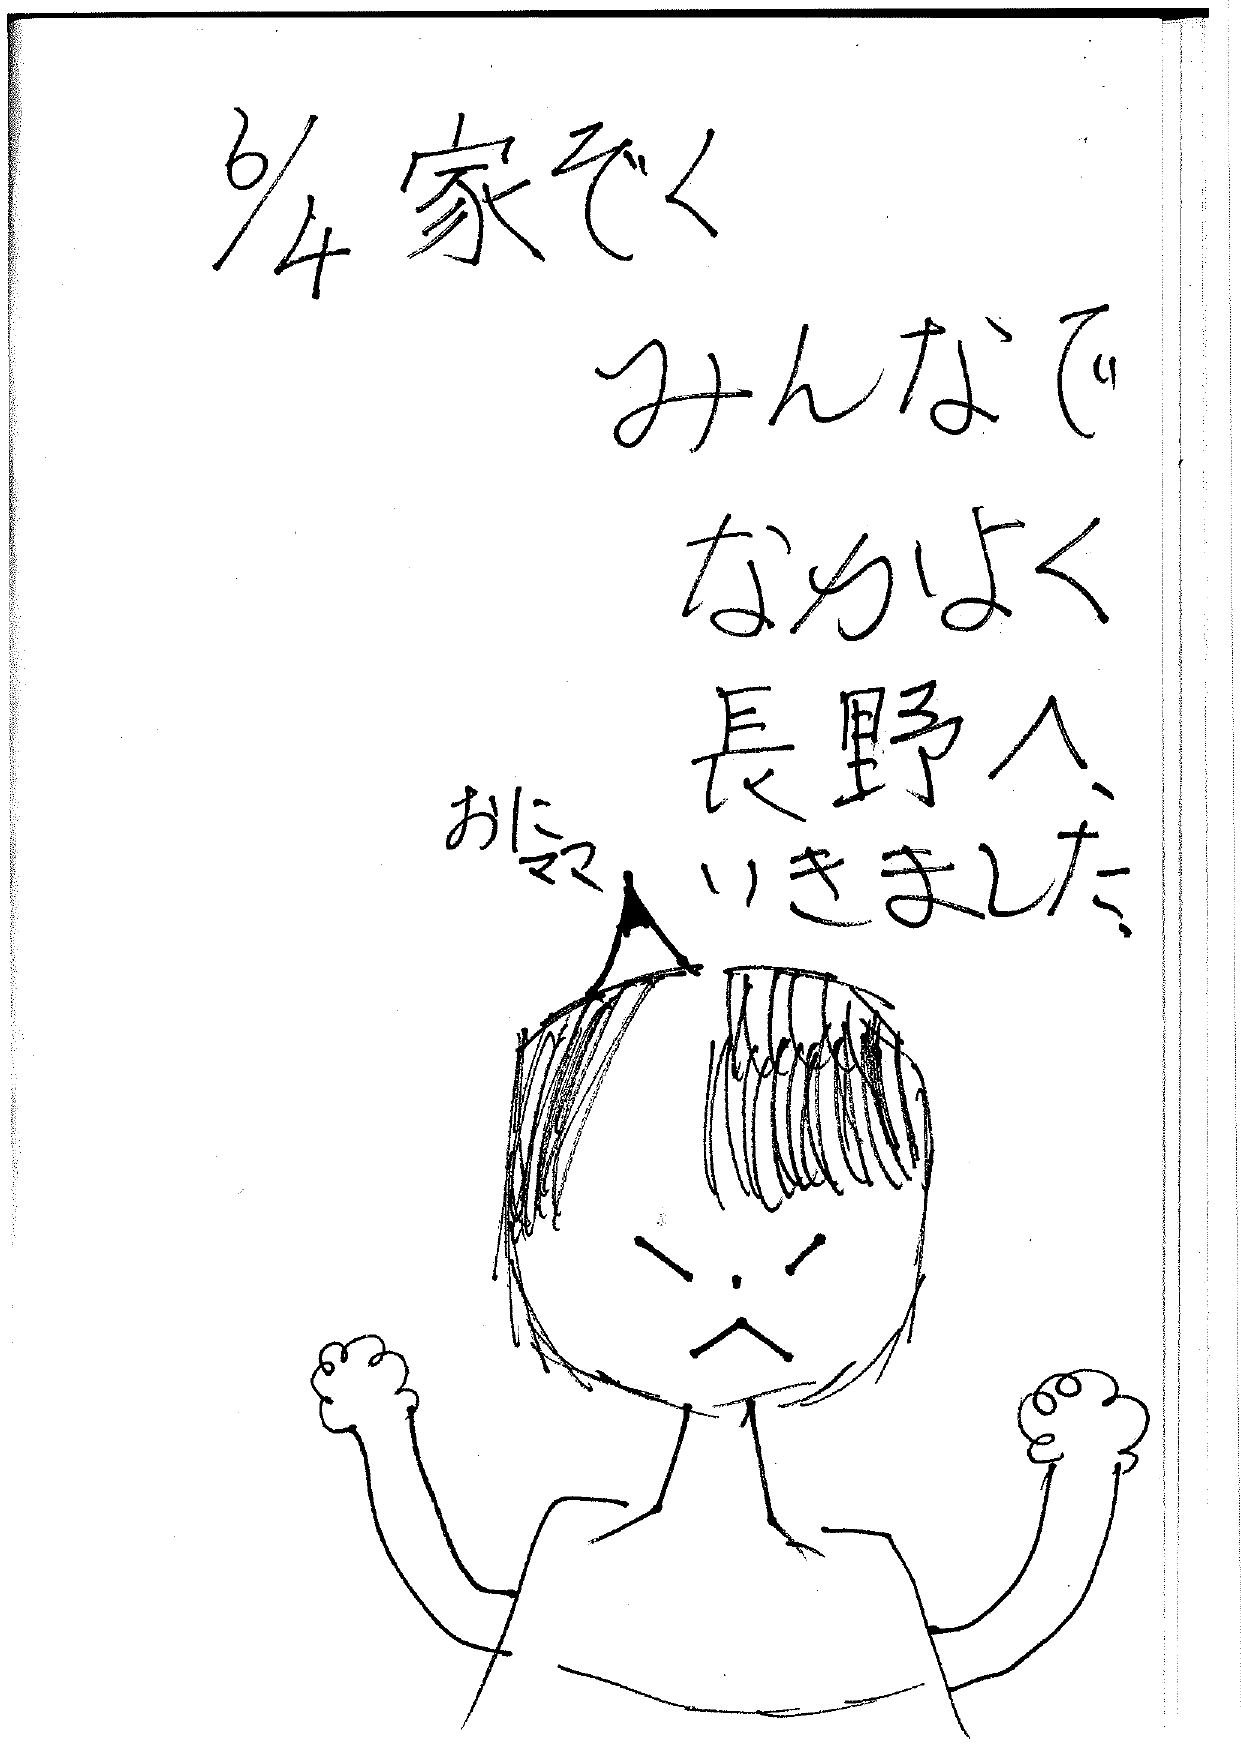 6/4 家ぞく
みんなで
なかよく
長野へ、
いきました、
おに
ママ